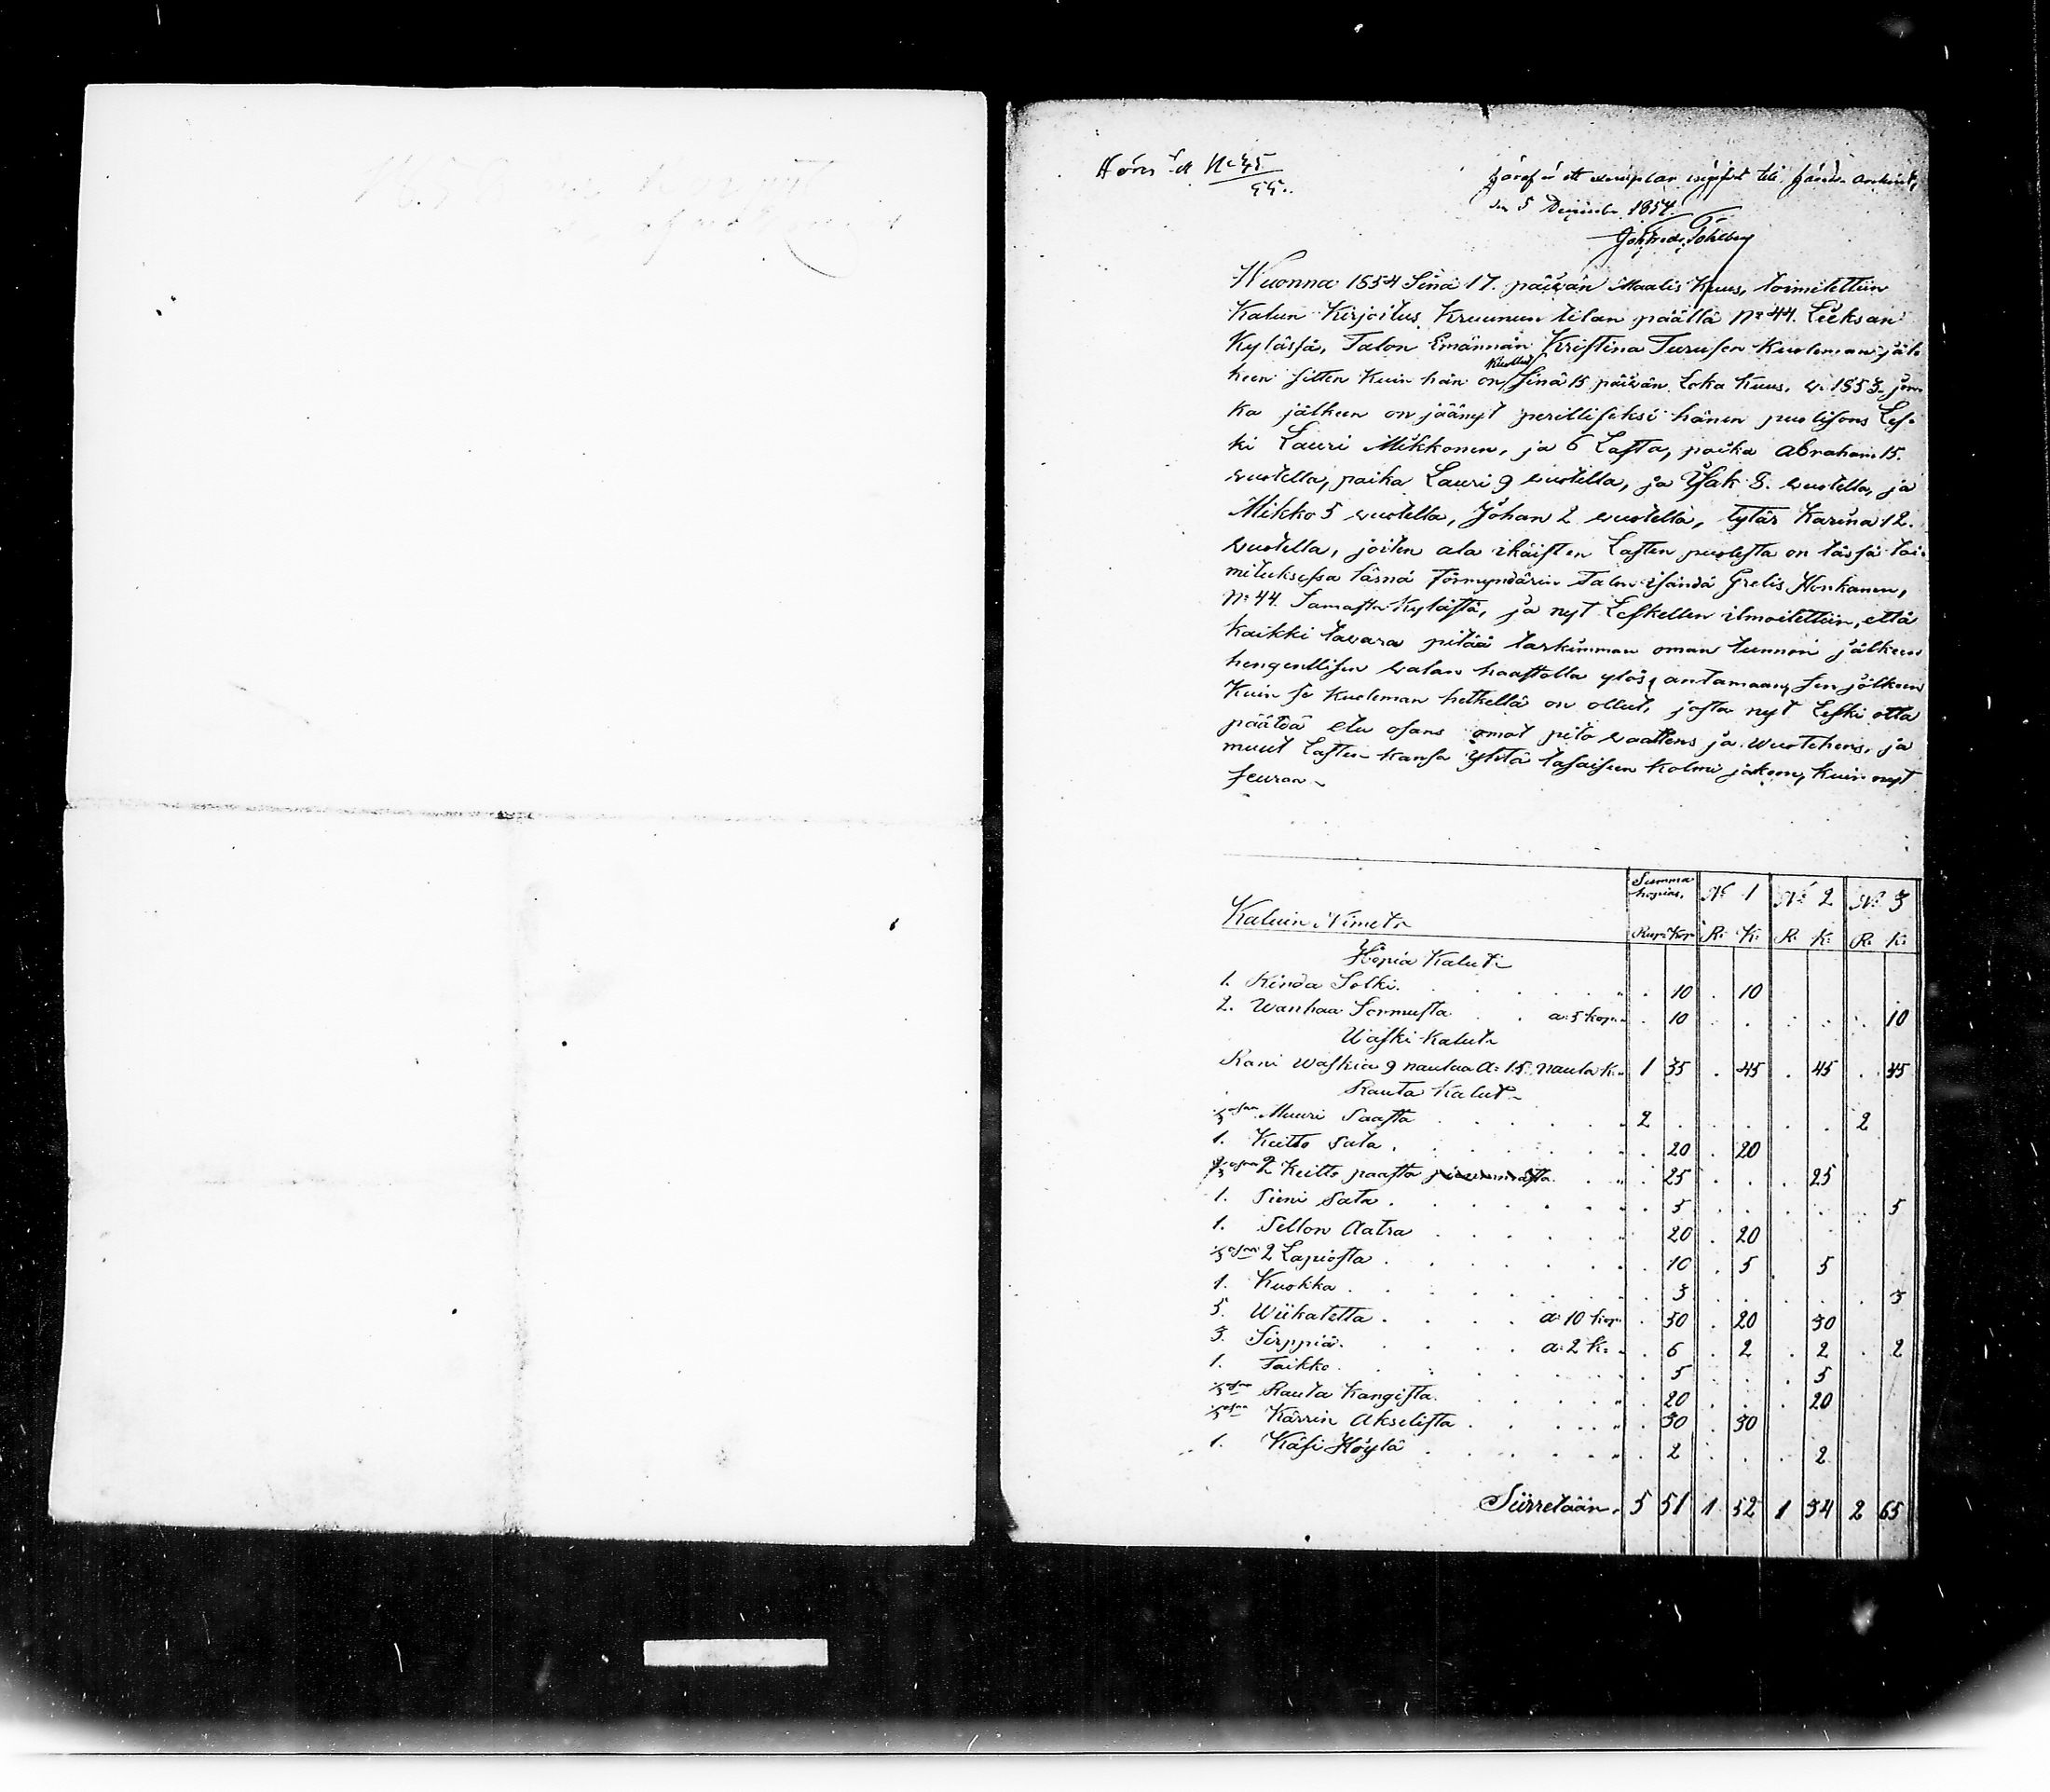 Hörer til No 45
55.
häraf är ett exemplar insändt till Härads Archivet,
den 5 December 1854.
Wuonna 1854 Sinä 17. päiwän Maalis Kuus, toimitettiin
Kalun Kirjoitus Kruunun tilan päällä No 44. Lieksan
Kylässä, Talon Emännän Kristina Turusen Kuoleman jäl-
keen sitten Kuin hän on Kuollut sinä 15 päiwän Loka Kuus. w. 1853, jon-
ka jälkeen on jäänyt perilliseksi hänen puolisons Les-
ki Lauri Mikkonen, ja 6 Lasta, poika Abraham 15.
wuotella, poika Lauri 9 wuotella, ja Isak 8. wuotella, ja
Mikko 5 wuotella, Johan 2 wuotella, tytär Karina 12.
wuotella, joiten ala ikäisten Lasten puolesta on tässä toi-
mituksessa läsnä Förmyndärin Talon isändä Grelis Honkanen,
No 44. Samasta Kylästä, ja nyt Leskellen ilmoitettiin, että
Kaikki tawara pitää tarkimman oman tunnon jälkeen
hengenllisen walan haastolla ylös antamaan, sen jälkeen
Kuin se Kuoleman hetkellä on ollut, josta nyt Leski otta
päätdä etu osans omat pito waattens ja wuotehens, ja
muut Lasten kansa yhtä tasaiseen Kolmi jakoon, Kuin nyt
seuraa
Kaluin Nimet Summa hopias. No 1 No 2 No 3
Rup: Kop R: K: R: K: R: K:
Höpia Kalut
1. Rinda Solki. 10 10
2. Wanhaa Sormusta a: 5 kop. 10 10
Waski Kalut
Rani Waskia 9 naulaa a: 15 naula K. 1 35 45 45 45
Rauta Kalut
1/3 osaa Muuri Paasta 2 2
1. Keitto Pata 20 20
1/3 osaa 2 Keitto paasta 25 25
1. Pieni Pata 5 5
1. Pellon Aatra 20 20
1/3 osaa 2 Lapiosta 10 5 5
1. Kuokka 3 3
5. Wiikatetta a: 10 kop 50 20 30
3. Sirppiä a: 2 K. 6 2 2 2
1. Taikko 5 5
1/3 osaa Rauta Kangista 20 20
1/3 osaa Kärrin Akselista 30 30
1. Käsi Höylä 2 2
Siirretään. 5 51 1 52 1 34 2 65